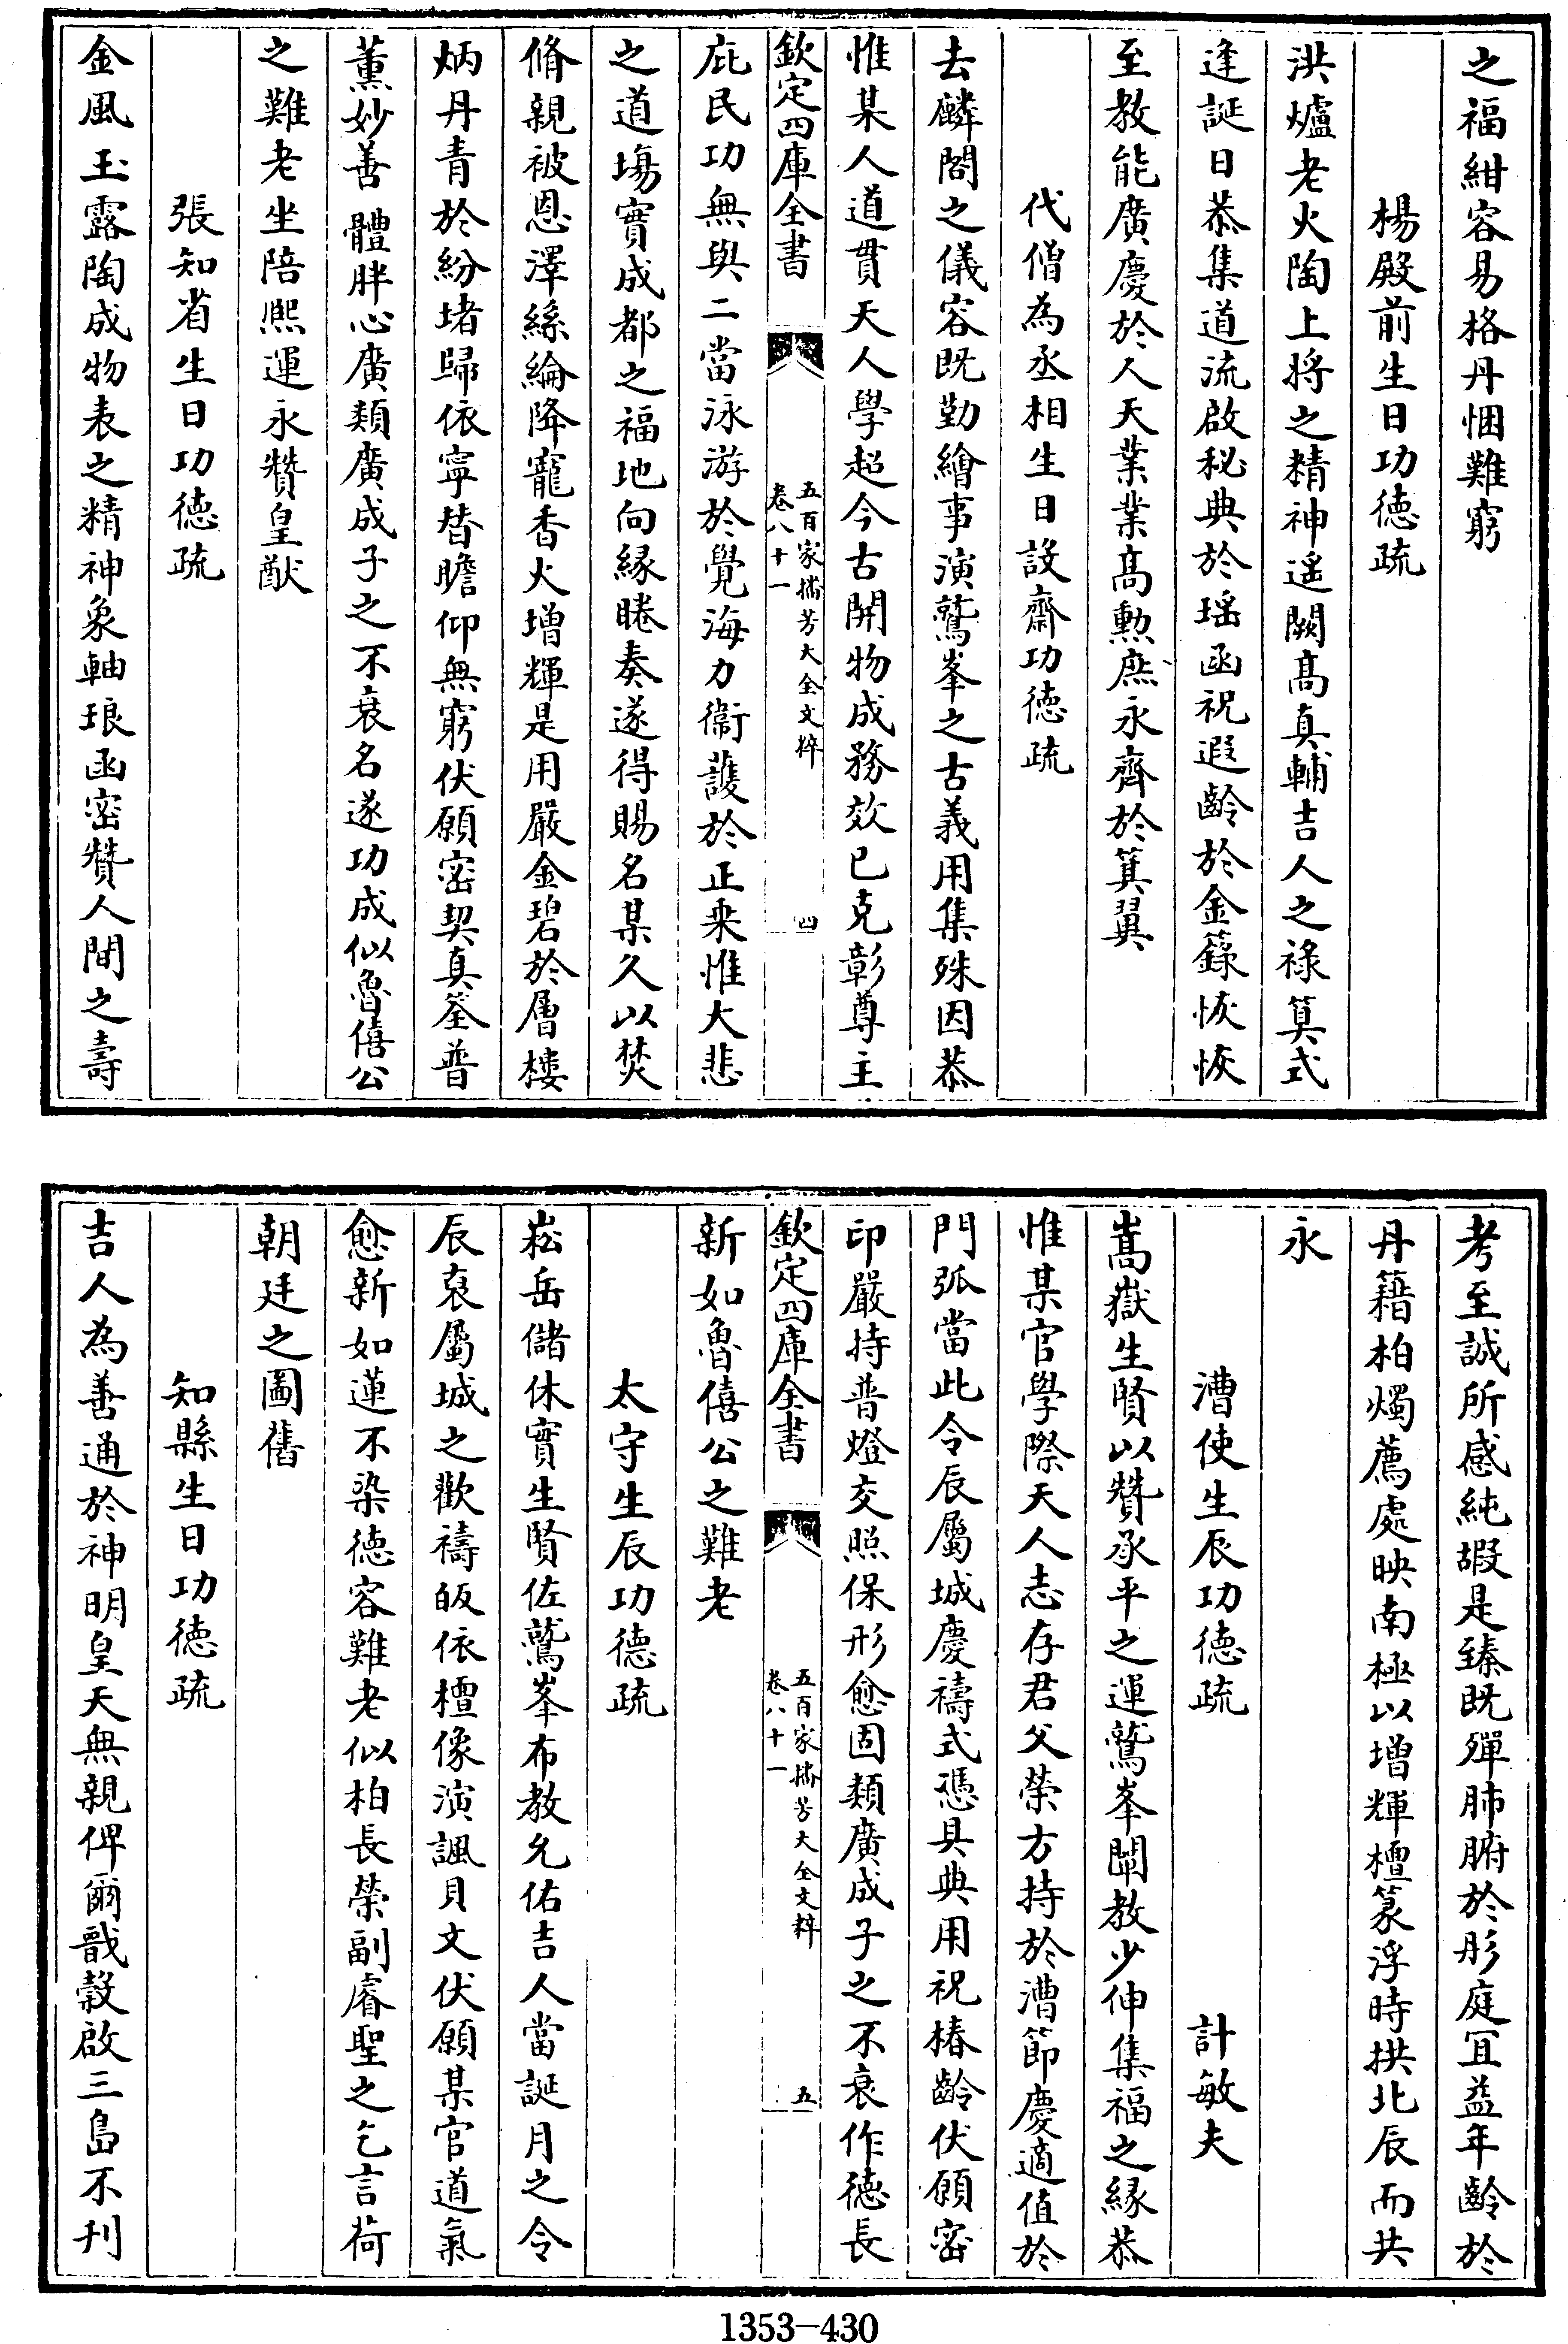 之福紺容易格丹悃難窮
楊殿前生日功徳疏
洪爐老火陶上將之精神遥闕髙真輔吉人之祿筭式
逢誕日恭集道流啟秘典於瑶函祝遐齡於金籙恢恢
至教能廣慶於人天業業髙勲庶永齊於箕翼
代僧為丞相生日設齋功徳疏
去麟閣之儀容既勤繪事演鷲峯之古義用集殊因恭
惟某人道貫天人學超今古開物成務效已克彰尊主
欽定四庫全書
五百家播芳大全文粹
卷八十一
四
庇民功無與二當泳游於覺海力衞護於正乗惟大悲
之道塲實成都之福地向縁睠奏遂得賜名某久以焚
脩親被恩澤絲綸降寵香火増輝是用嚴金碧於層樓
炳丹青於紛堵歸依寧替瞻仰無窮伏願密契真筌普
薰妙善體胖心廣類廣成子之不衰名遂功成似魯僖公
之難老坐陪熈運永贊皇猷
張知省生日功徳疏
金風玉露陶成物表之精神象軸琅函密贊人間之壽
考至誠所感純嘏是臻既殫肺腑於彤庭宜益年齡於
丹籍柏燭薦處映南極以増輝檀篆浮時拱北辰而共
永
漕使生辰功徳疏 計敏夫
嵩嶽生賢以贊承平之運鷲峯闡教少伸集福之縁恭
惟某官學際天人志存君父榮方持於漕節慶適值於
門弧當此令辰屬城慶禱式憑具典用祝椿齡伏願密
印嚴持普燈交照保形愈固類廣成子之不衰作徳長
欽定四庫全書
五百家播芳大全文粹
卷八十一
五
新如魯僖公之難老
太守生辰功徳疏
崧岳儲休實生賢佐鷲峯布教允佑吉人當誕月之令
辰裒屬城之歡禱皈依檀像演諷貝文伏願某官道氣
愈新如蓮不染徳容難老似柏長榮副睿聖之乞言荷
朝廷之圖舊
知縣生日功徳疏
吉人為善通於神明皇天無親俾爾戩榖啟三島不刊
1353-430